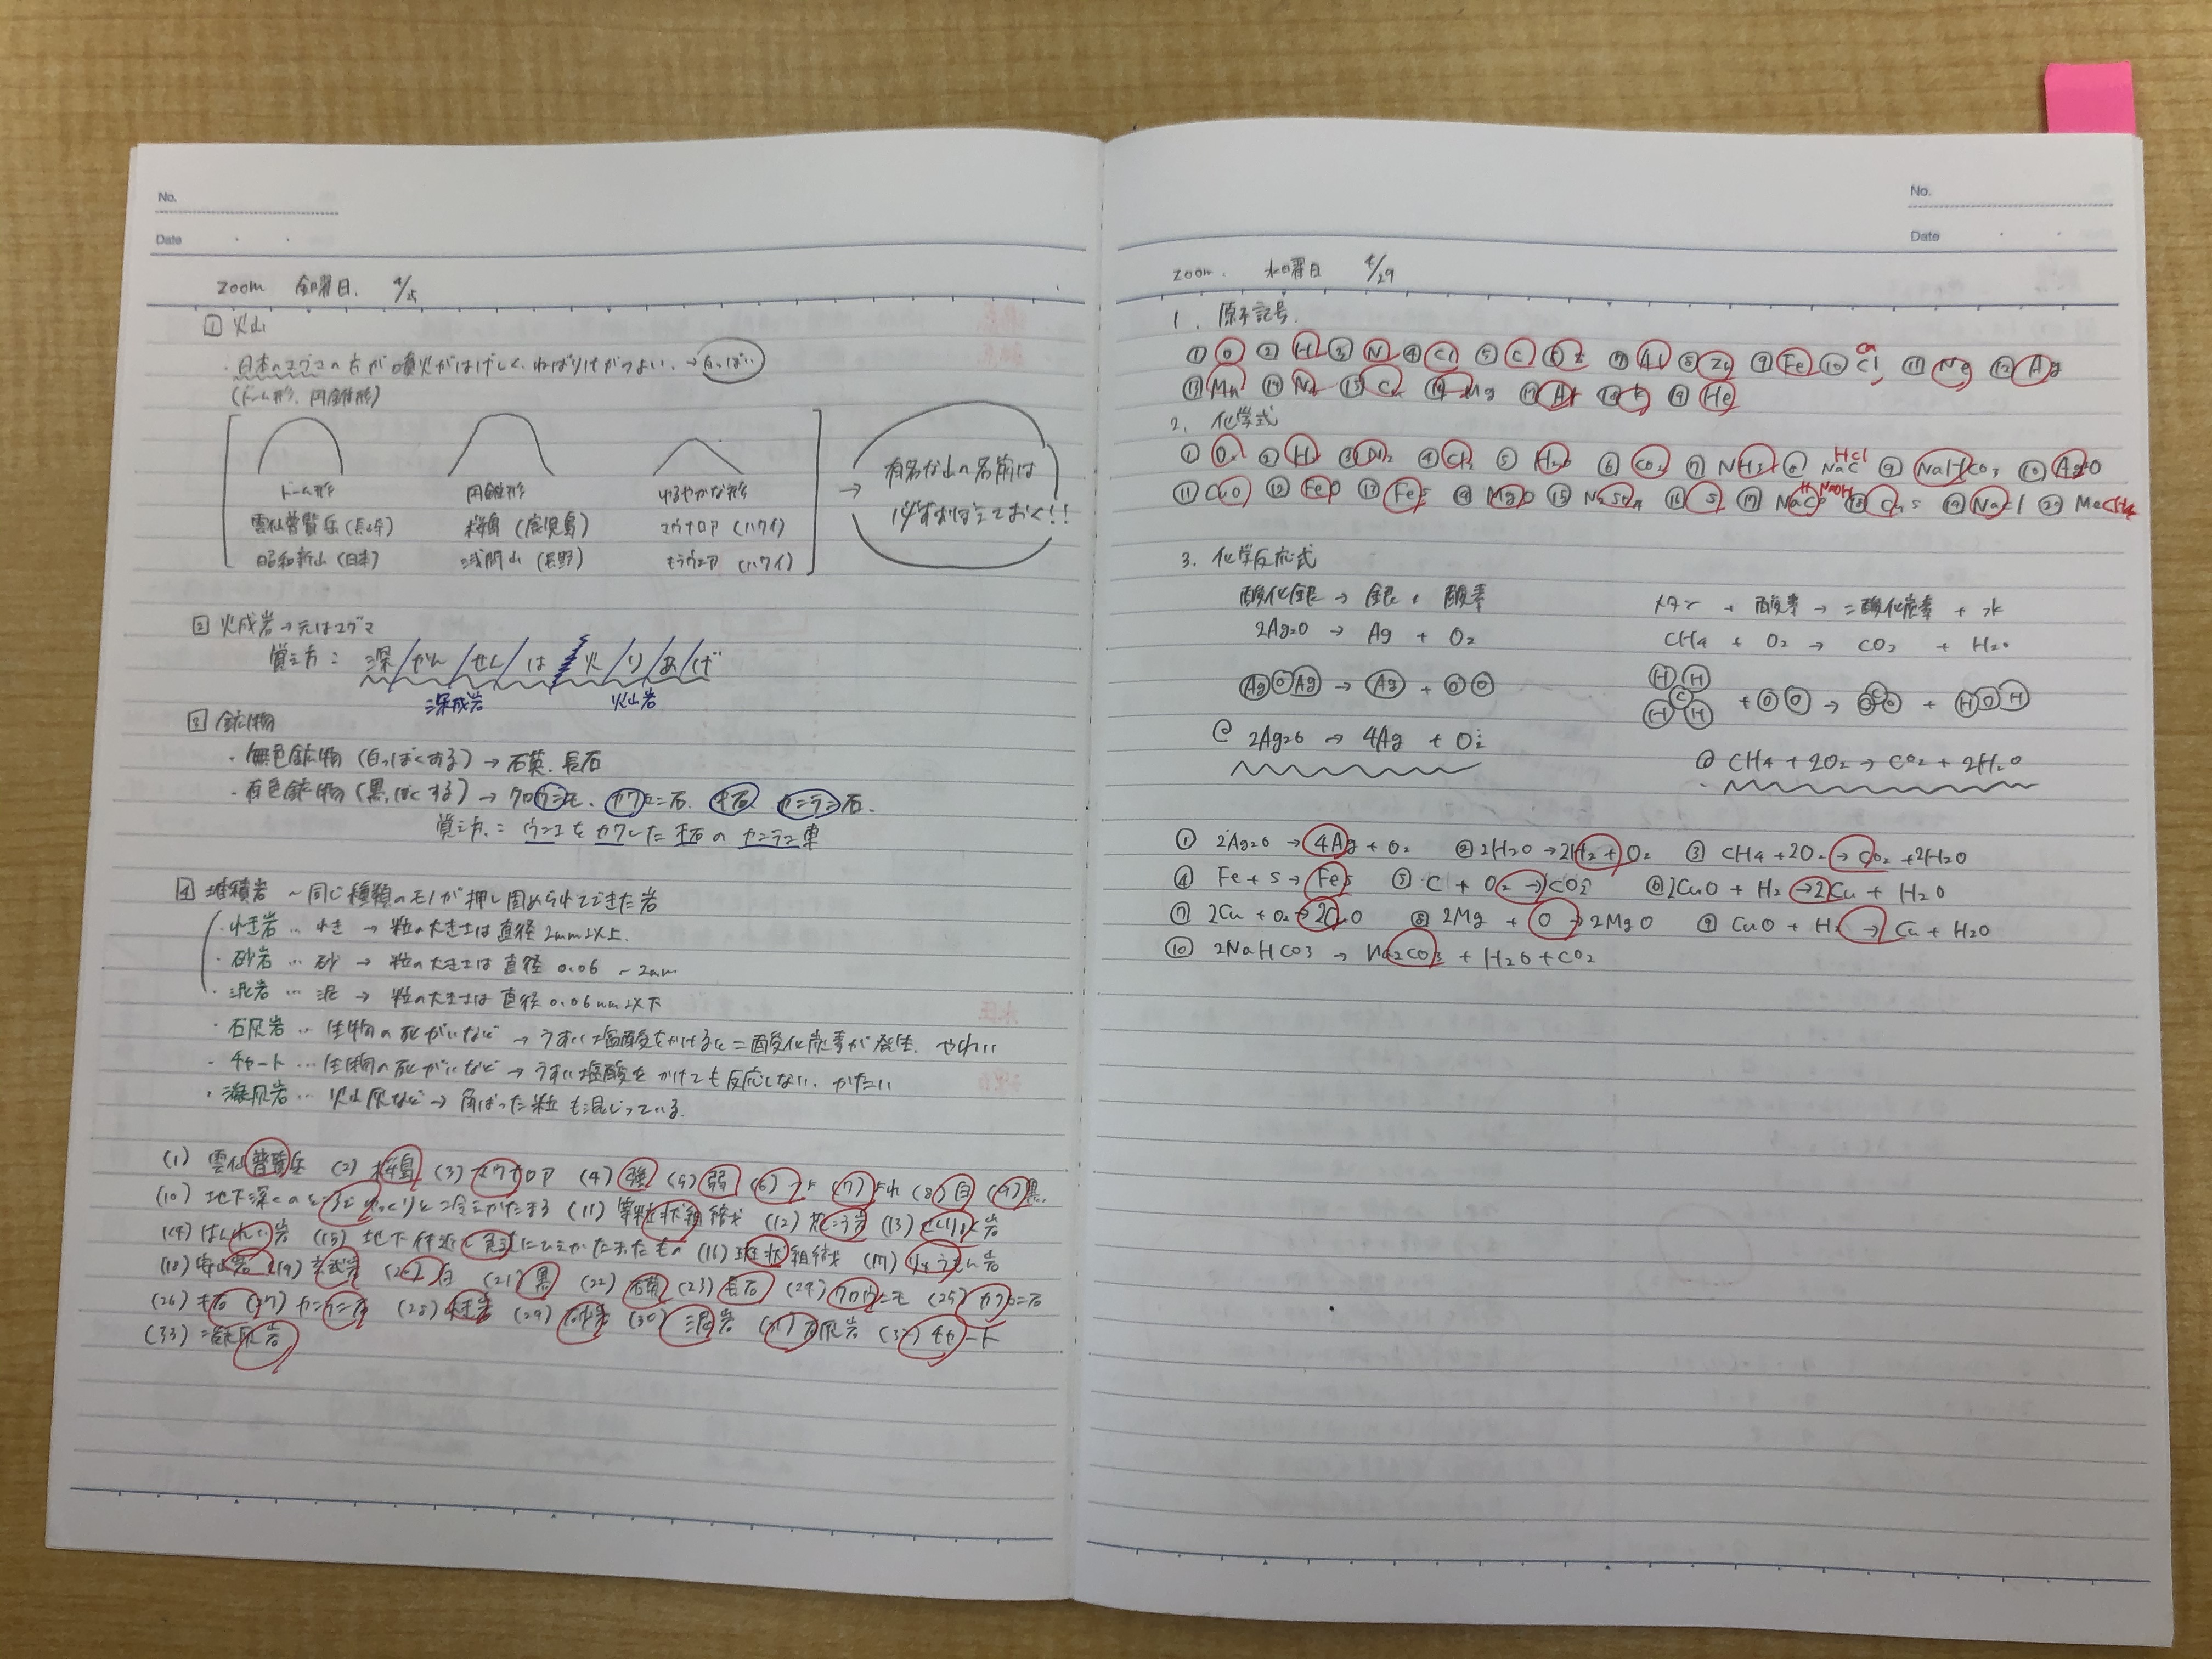 No.
Date
zoom 金曜日. 4/25
1 火山
・日本のマグマの方が噴火がはげしく、ねばりけがつよい. → 白っぽい
(ドーム形、円錐形)
ドーム形 円錐形 ゆるやかな形
雲仙普賢岳 (長崎) 桜島 (鹿児島) マウナロア (ハワイ)
昭和新山 (日本) 浅間山 (長野) キラウェア (ハワイ)
→ 有名な山の名前は
必ずおぼえておく!!
2 火成岩→元はマグマ
覚え方: 深/かん/せん/は/火/り/あ/げ
深成岩 火山岩
3 鉱物
・無色鉱物 (白っぽくする) → 石英、長石
・有色鉱物 (黒っぽくする) → クロウンモ、カクセン石、キ石、カンラン石.
覚え方:
4 堆積岩 ~同じ種類のモノが押し固められてできた岩
・れき岩 … れき → 粒の大きさは直径 2mm以上.
・砂岩 … 砂 → 粒の大きさは直径 0.06 ~ 2mm
・泥岩 … 泥 → 粒の大きさは直径 0.06mm以下
・石灰岩 … 生物の死がいなど → うすい塩酸をかけると二酸化炭素が発生. やわい
・チャート … 生物の死がいなど → うすい塩酸をかけても反応しない. かたい
・凝灰岩 … 火山灰など → 角ばった粒も混じっている.
(1) 雲仙普賢岳 (2) 桜島 (3) マウナロア (4) 強 (5) 弱 (6) (7) (8) 白 (9) 黒.
(10) 地下深くのところでゆっくりと冷えかたまる (11) 等粒状組織 (12) 花こう岩 (13) せんりょく岩
(14) はんれい岩 (15) 地下付近で急速にひえかたまったもの (16) 斑状組織 (17) りゅうもん岩
(18) 安山岩 (19) 玄武岩 (20) 白 (21) 黒 (22) 石英 (23) 長石 (24) クロウンモ (25) カクセン石
(26) キ石 (27) カンラン石 (28) れき岩 (29) 砂岩 (30) 泥岩 (31) 石灰岩 (32) チャート
(33) 凝灰岩
No.
Date
zoom. 水曜日 4/29
1. 原子記号.
① O ② H ③ N ④ Cl ⑤ C ⑥ ⑦ Al ⑧ Zn ⑨ Fe ⑩ Cl Ca ⑪ ⑫ Ag
⑬ Mn ⑭ Na ⑮ Cu ⑯ Mg ⑰ Ar ⑱ K ⑲ He
2. 化学式
① O₂ ② H₂ ③ N₂ ④ Cl₂ ⑤ H₂O ⑥ CO₂ ⑦ NH3 ⑧ NaC HCl ⑨ NaHCO3 ⑩ Ag2O
⑪ CuO ⑫ FeO ⑬ FeS ⑭ MgO ⑮ ⑯ S ⑰ NaOH ⑱ CuS ⑲ NaCl ⑳ CH4
3. 化学反応式
酸化銀 → 銀 + 酸素
2Ag2O → Ag + O₂
Ag O Ag → Ag + O O
@ 2Ag2O → 4Ag + O2
メタン + 酸素 → 二酸化炭素 + 水
CH4 + O₂ → CO₂ + H₂O
H H C H H + O O → O C O + H O H
@ CH4 + 2O₂ → CO₂ + 2H₂O
① 2Ag2O → 4Ag + O₂ ② 2H₂O → 2H₂ + O₂ ③ CH4 + 2O₂ → CO₂ + 2H₂O
④ Fe + S → FeS ⑤ C + O₂ → CO2 ⑥ 2CuO + H₂ → 2Cu + H₂O
⑦ 2Cu + O₂ → 2CuO ⑧ 2Mg + O → 2MgO ⑨ CuO + H₂ → Cu + H₂O
⑩ 2NaHCO3 → Na2CO3 + H₂O + CO₂